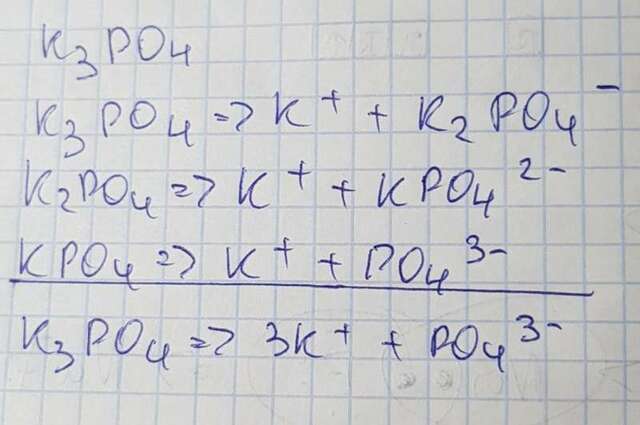 K₃PO₄
K₃PO₄ => K⁺ + K₂PO₄⁻
K₂PO₄ => K⁺ + KPO₄²⁻
KPO₄ => K⁺ + PO₄³⁻
K₃PO₄ => 3K⁺ + PO₄³⁻